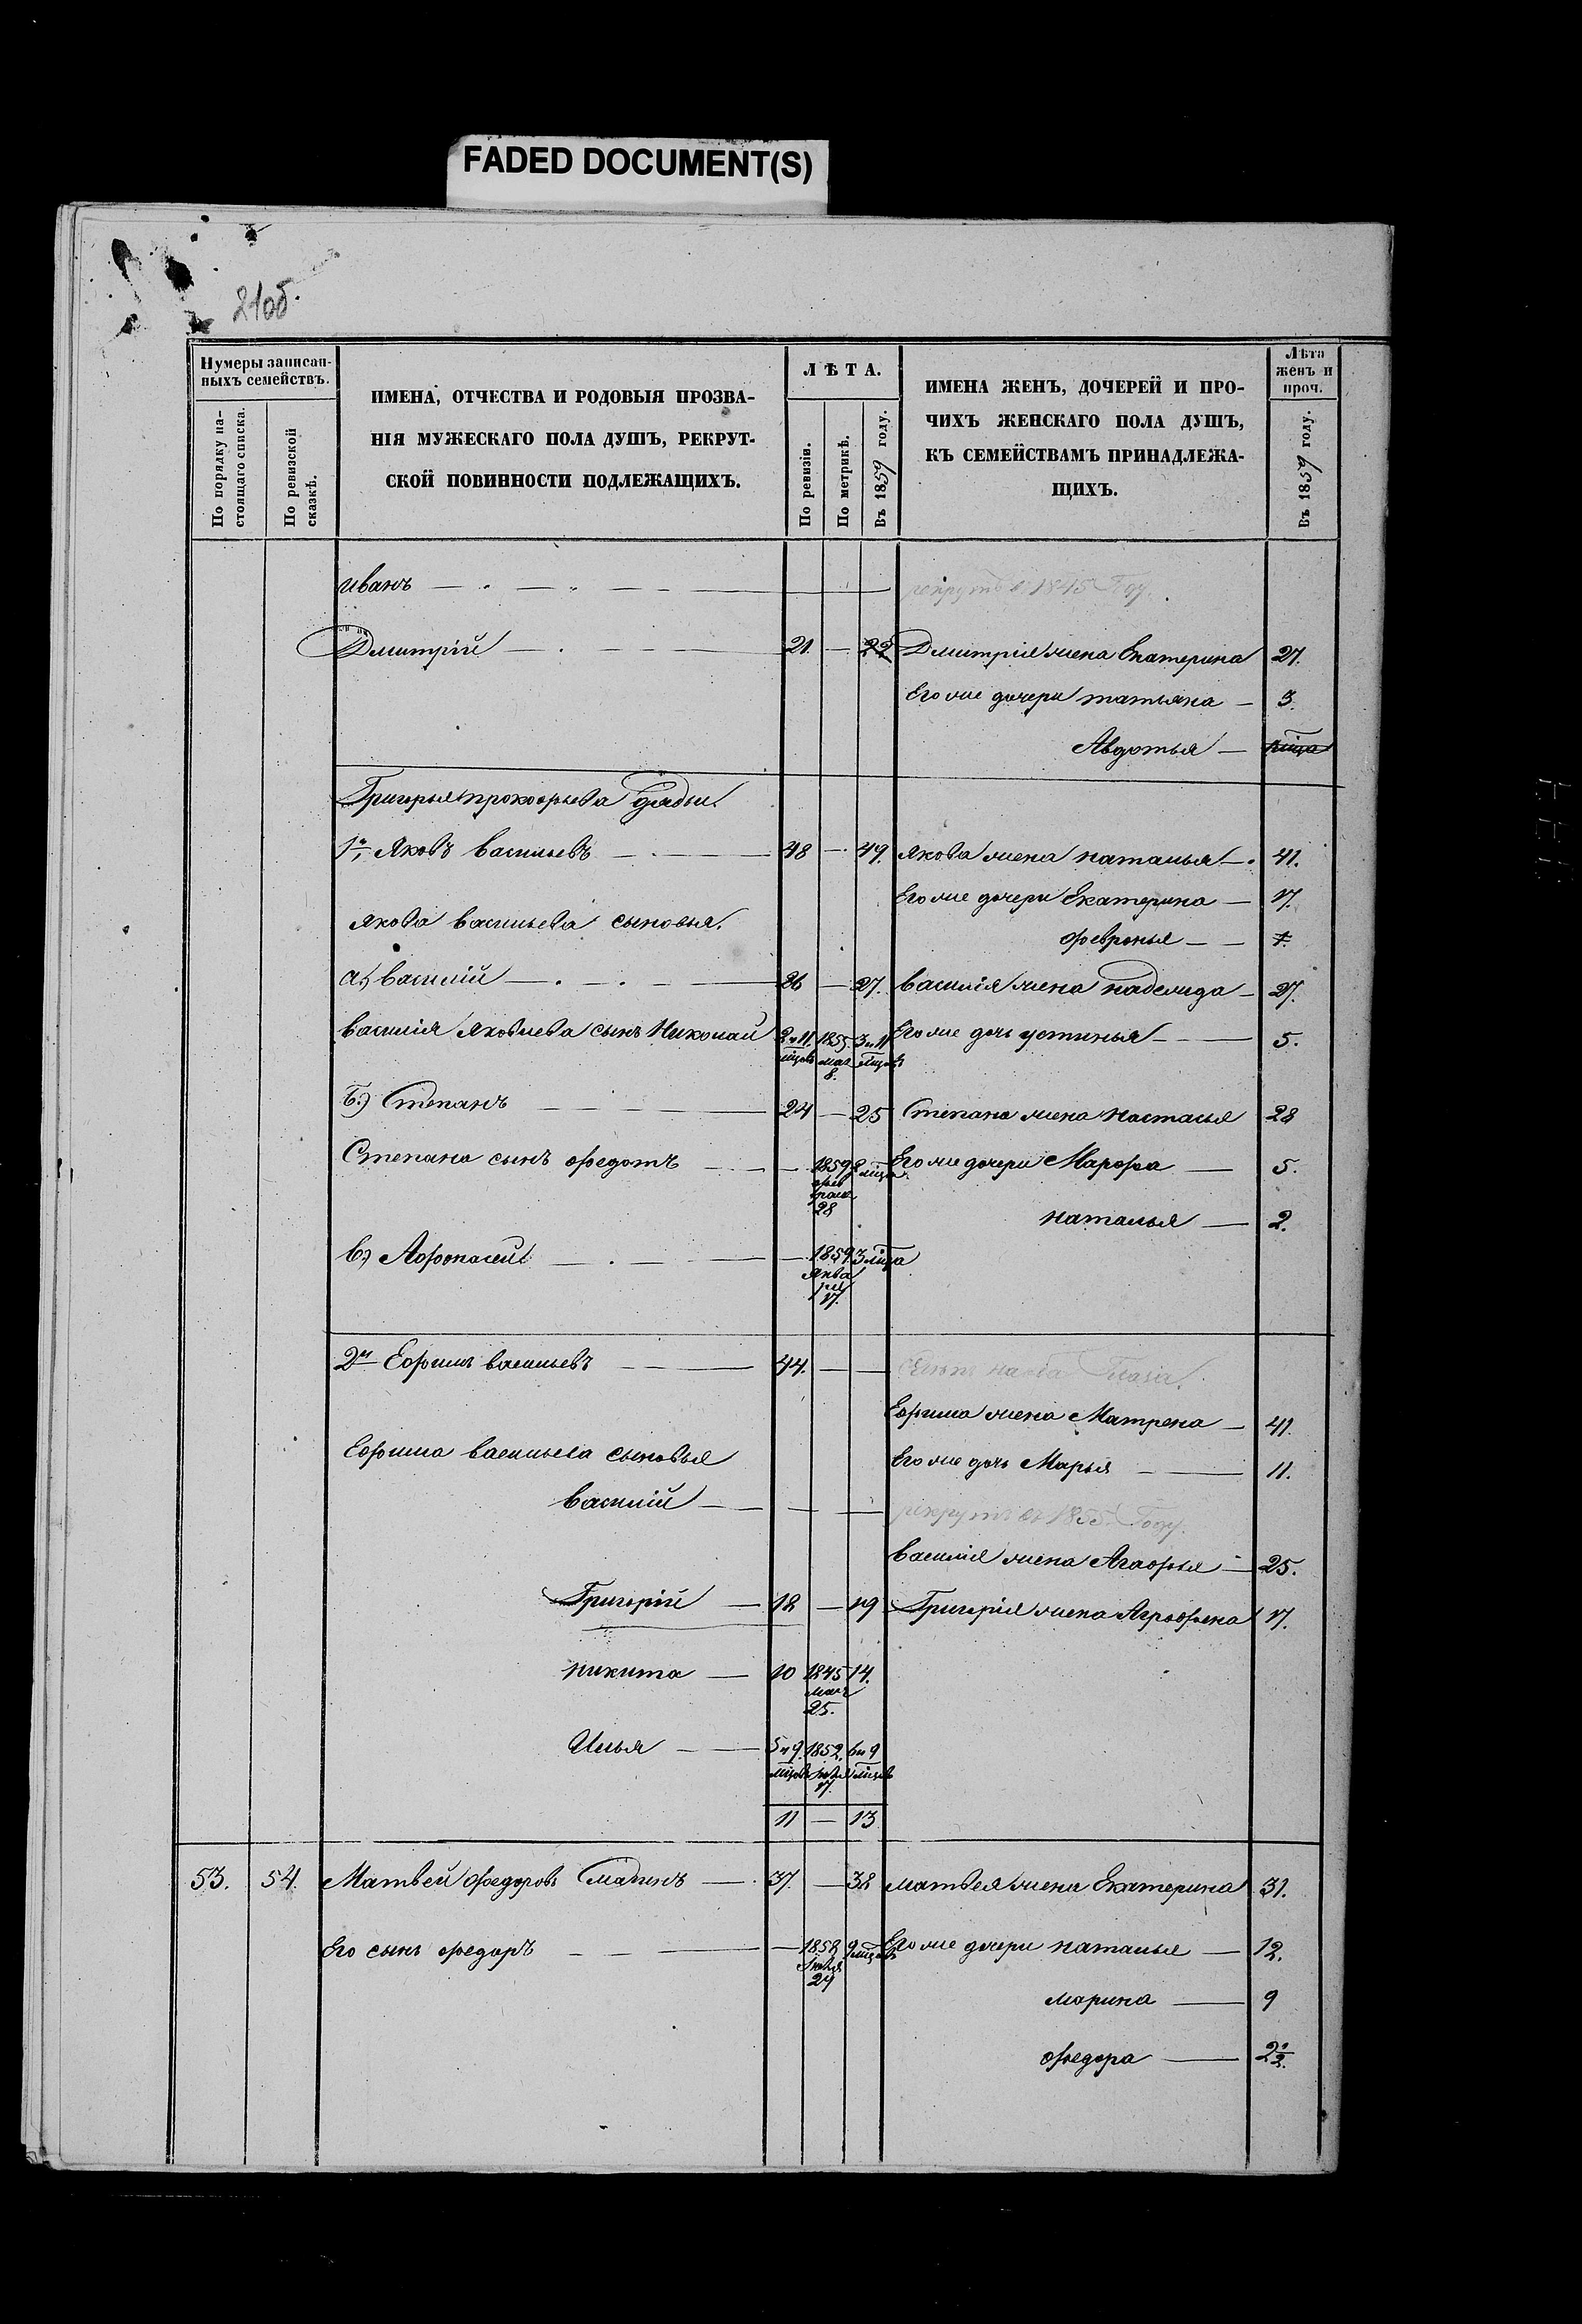 FADED DOCUMENT(S)
21об.
Нумеры записан-
ныхъ семействъ.
По порядку на-
стоящаго списка.
По ревизской
сказкѣ.
ИМЕНА, ОТЧЕСТВА И РОДОВЫЯ ПРОЗВА-
НІЯ МУЖЕСКАГО ПОЛА ДУШЪ, РЕКРУТ-
СКОЙ ПОВИННОСТИ ПОДЛЕЖАЩИХЪ.
ЛѢТА.
По ревизіи.
По метрикѣ.
Въ 1859 году.
ИМЕНА ЖЕНЪ, ДОЧЕРЕЙ И ПРО-
ЧИХЪ ЖЕНСКАГО ПОЛА ДУШЪ,
КЪ СЕМЕЙСТВАМЪ ПРИНАДЛЕЖА-
ЩИХЪ.
Лѣта
женъ и
проч.
Въ 1859 году.
Иванъ — рекрутъ в 1845 Году.
Дмитрій — 21. — 22 Дмитрія жена Екатерина 27.
Его же дочери татьяна — 3.
Авдотья —
Григорья прокофьева дядьи.
1й, Яковъ васильевъ — 48 — 49. Якова жена наталья — 41.
Его же дочери Екатерина — 17.
Якова васильева сыновья.
февронья —
а.) василій — 26 — 27. василія жена надежда — 27.
василія Яковлева сынъ Николай 2 и 11 мцовъ 1855 мая 8. 3 и 11 мцовъ Его же дочь устинья — 5.
Б.) Степанъ — 24 — 25 Степана жена настасья 28
Степана сынъ федотъ — 1859 февраля 28 Его же дочери Марфа — 5.
наталья — 2.
в.) Афонасей — 1859 Января 17. 3 мца
2й Ефимъ васильевъ — 44. —
Ефима жена Матрена — 41.
Ефима васильева сыновья
Его же дочь Марья — 11.
василій — рекрутъ въ 1855. Году.
василія жена Агафья — 25.
Григорій — 18 — 19 Григорія жена Аграфена 17.
никита — 10 1845 мая 25. 14.
Илья — 5 и 9 мцовъ 1852. 17. 6 и 9 мцовъ
11 — 13
53. 54. Матвей федоровъ — 37. — 38 матвея жена Екатерина 31.
Его сынъ федоръ — 1858 24 9 мцовъ Его же дочери наталья — 12.
марина — 9
федора —